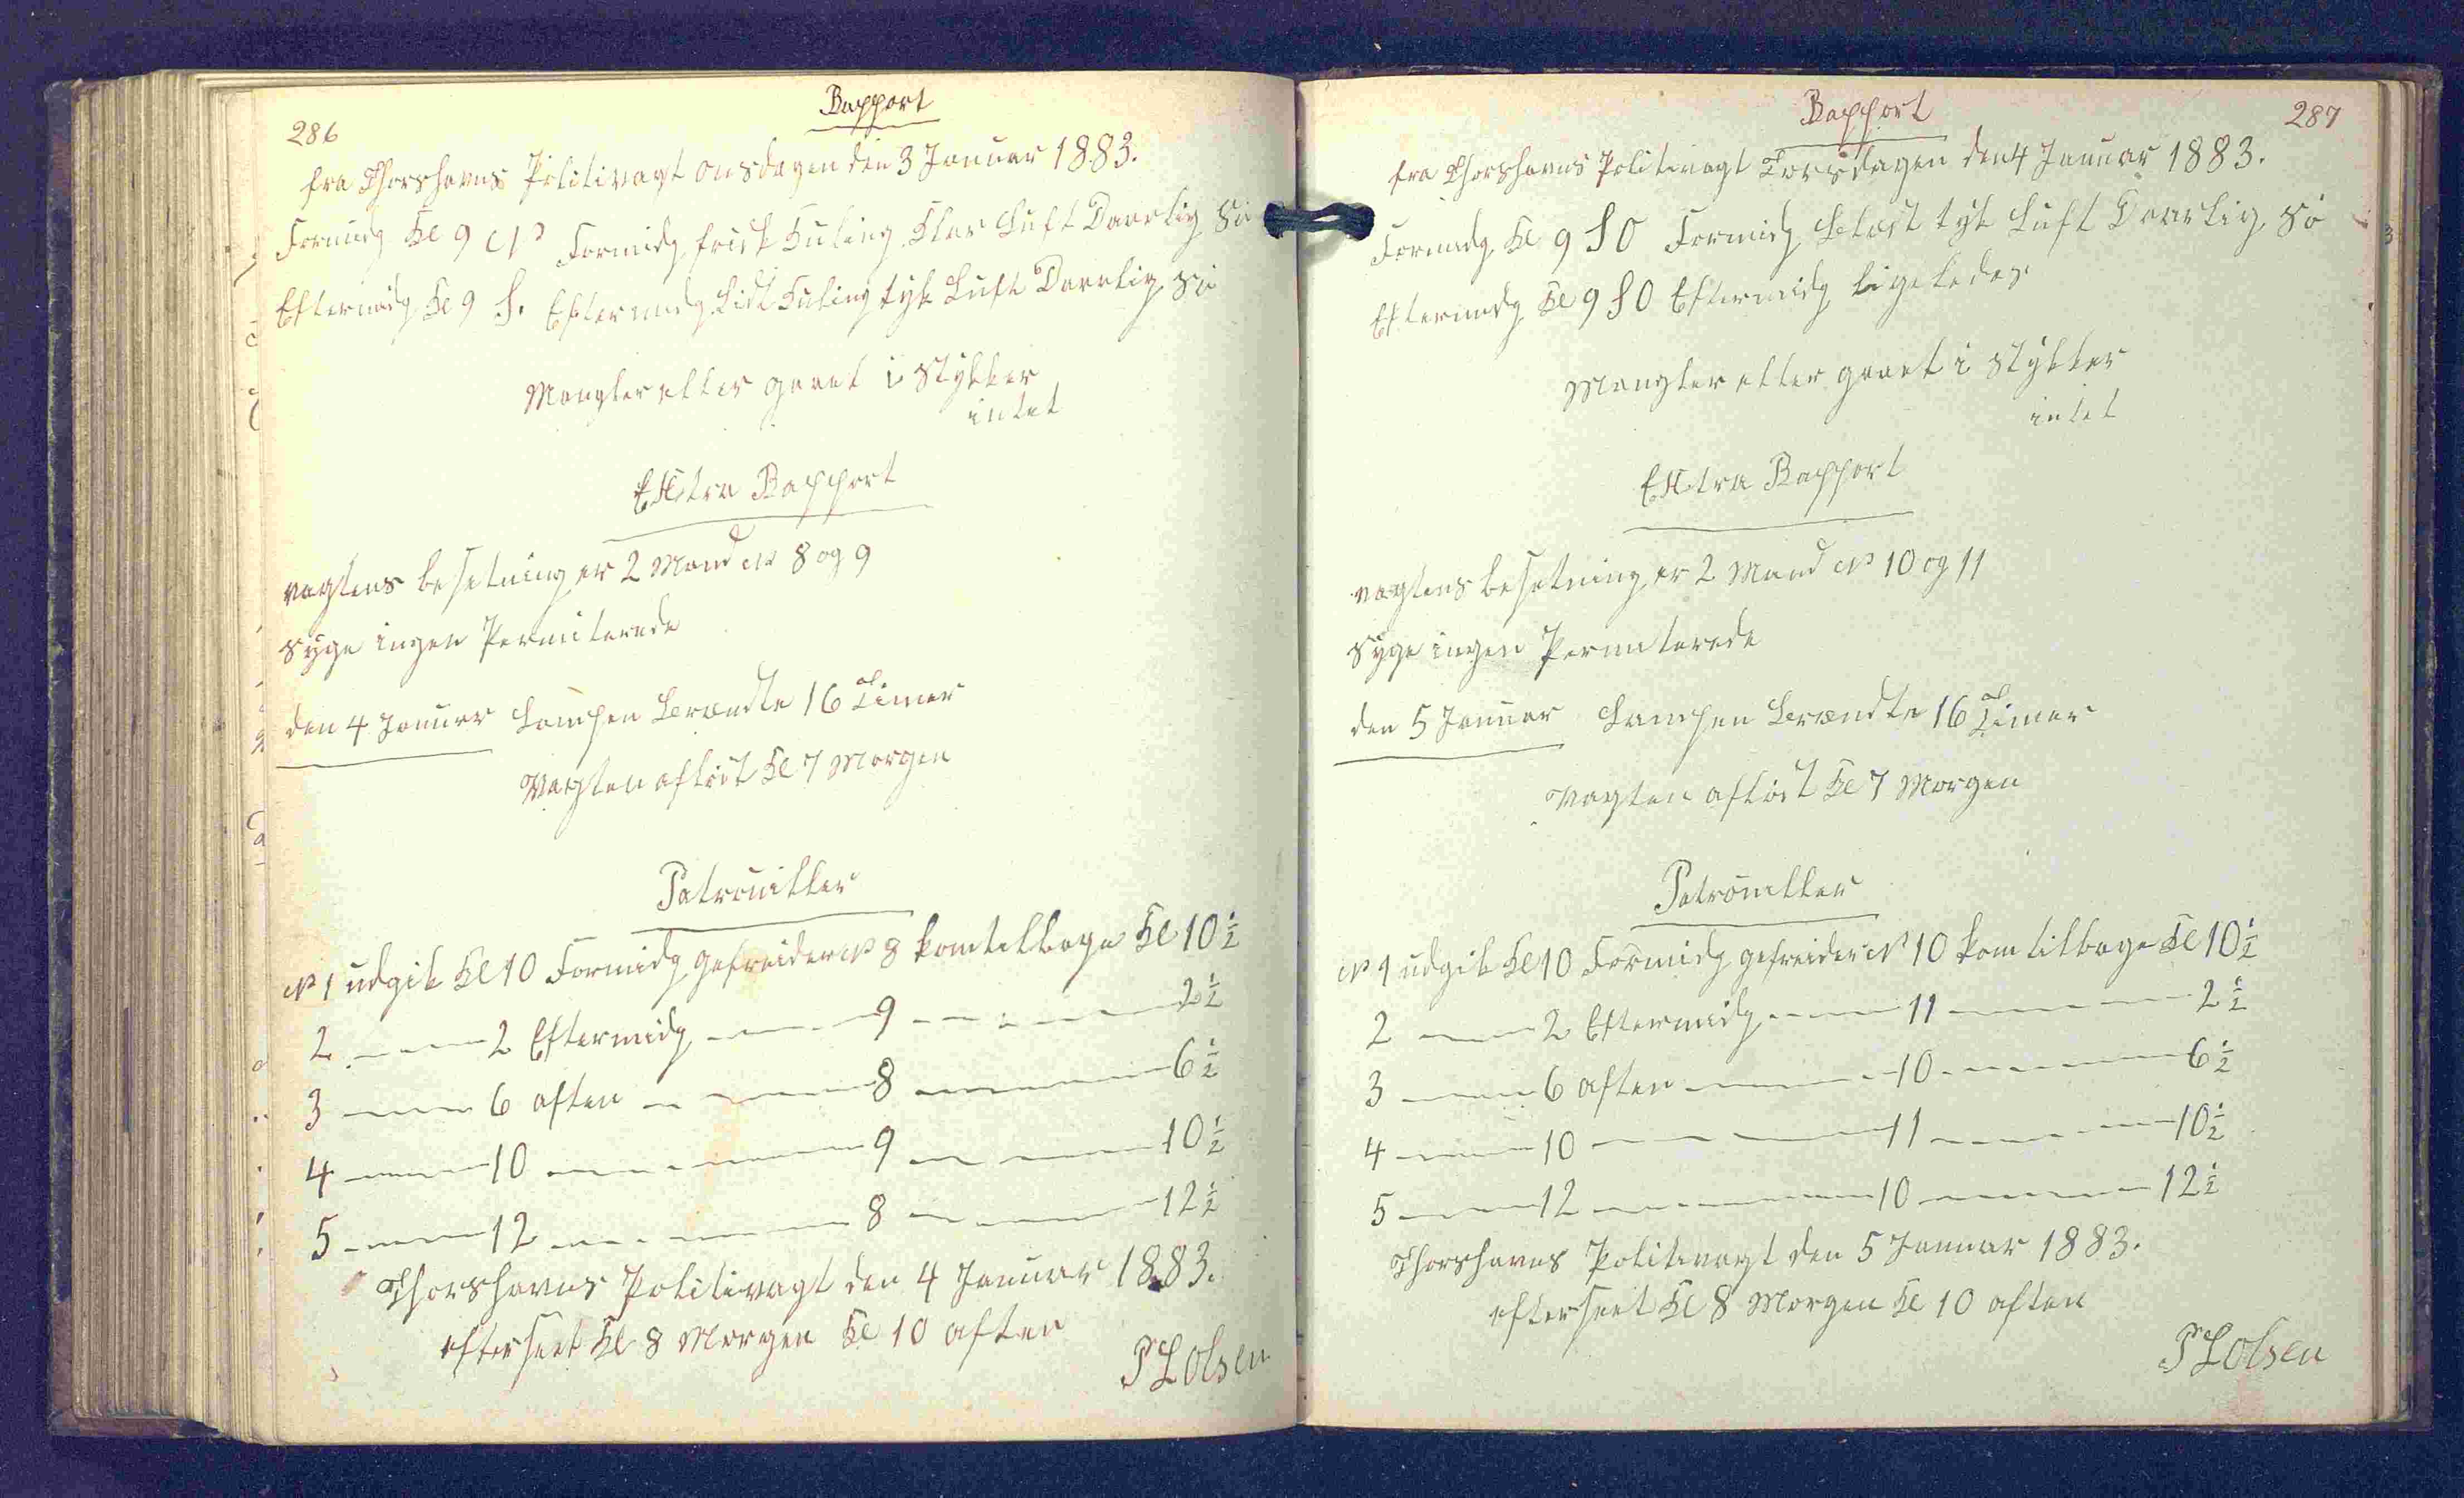 286
Rapport
fra Thorshavns Politivagt Onsdagen den 3 Januar 1883.
Formidg Kl 9 N Formidg frisk Kuling Klar Luft Daarlig Sö
Eftermidg Kl 9 S. Eftermidg Lidt Kuling tyk Luft Daarlig Sö
Mangler eller gaaet i Stykker
intet
Extra Rapport
vagtens besetning er 2 Mand No 8 og 9
Syge ingen Permiterede
den 4 Januar Lampen Brændte 16 Timer
Vagten aflöst Kl 7 Morgen
Patrouiller
No 1 udgik Kl 10 Formidg gefreider No 8 kom tilbage Kl 10 1/2
2 — 2 Eftermidg — 9 — 2 1/2
3 — 6 aften — 8 — 6 1/2
4 — 10 — 9 — 10 1/2
5 — 12 — 8 — 12 1/2
Thorshavns Politivagt den 4 Januar 1883.
efterseet Kl 8 Morgen Kl 10 aften
P L Olsen
Rapport
287
fra Thorshavns Politivagt Torsdagen den 4 Januar 1883.
Formidg Kl 9 S O Formidg Blæst tyk Luft Daarlig Sö
Eftermidg Kl 9 S O Eftermidg ligeledes
Mangler eller gaaet i Stykker
intet
Extra Rapport
vagtens besetning er 2 Mand No 10 og 11
Syge ingen Permiterede
den 5 Januar Lampen Brændte 16 Timer
Vagten aflöst Kl 7 Morgen
Patrouiller
No 1 udgik Kl 10 Formidg gefreider No 10 kom tilbage Kl 10 1/2
2 — 2 Eftermidg — 11 — 2 1/2
3 — 6 aften — 10 — 6 1/2
4 — 10 — 11 — 10 1/2
5 — 12 — 10 — 12 1/2
Thorshavns Politivagt den 5 Januar 1883.
efterseet Kl 8 Morgen Kl 10 aften
P L Olsen